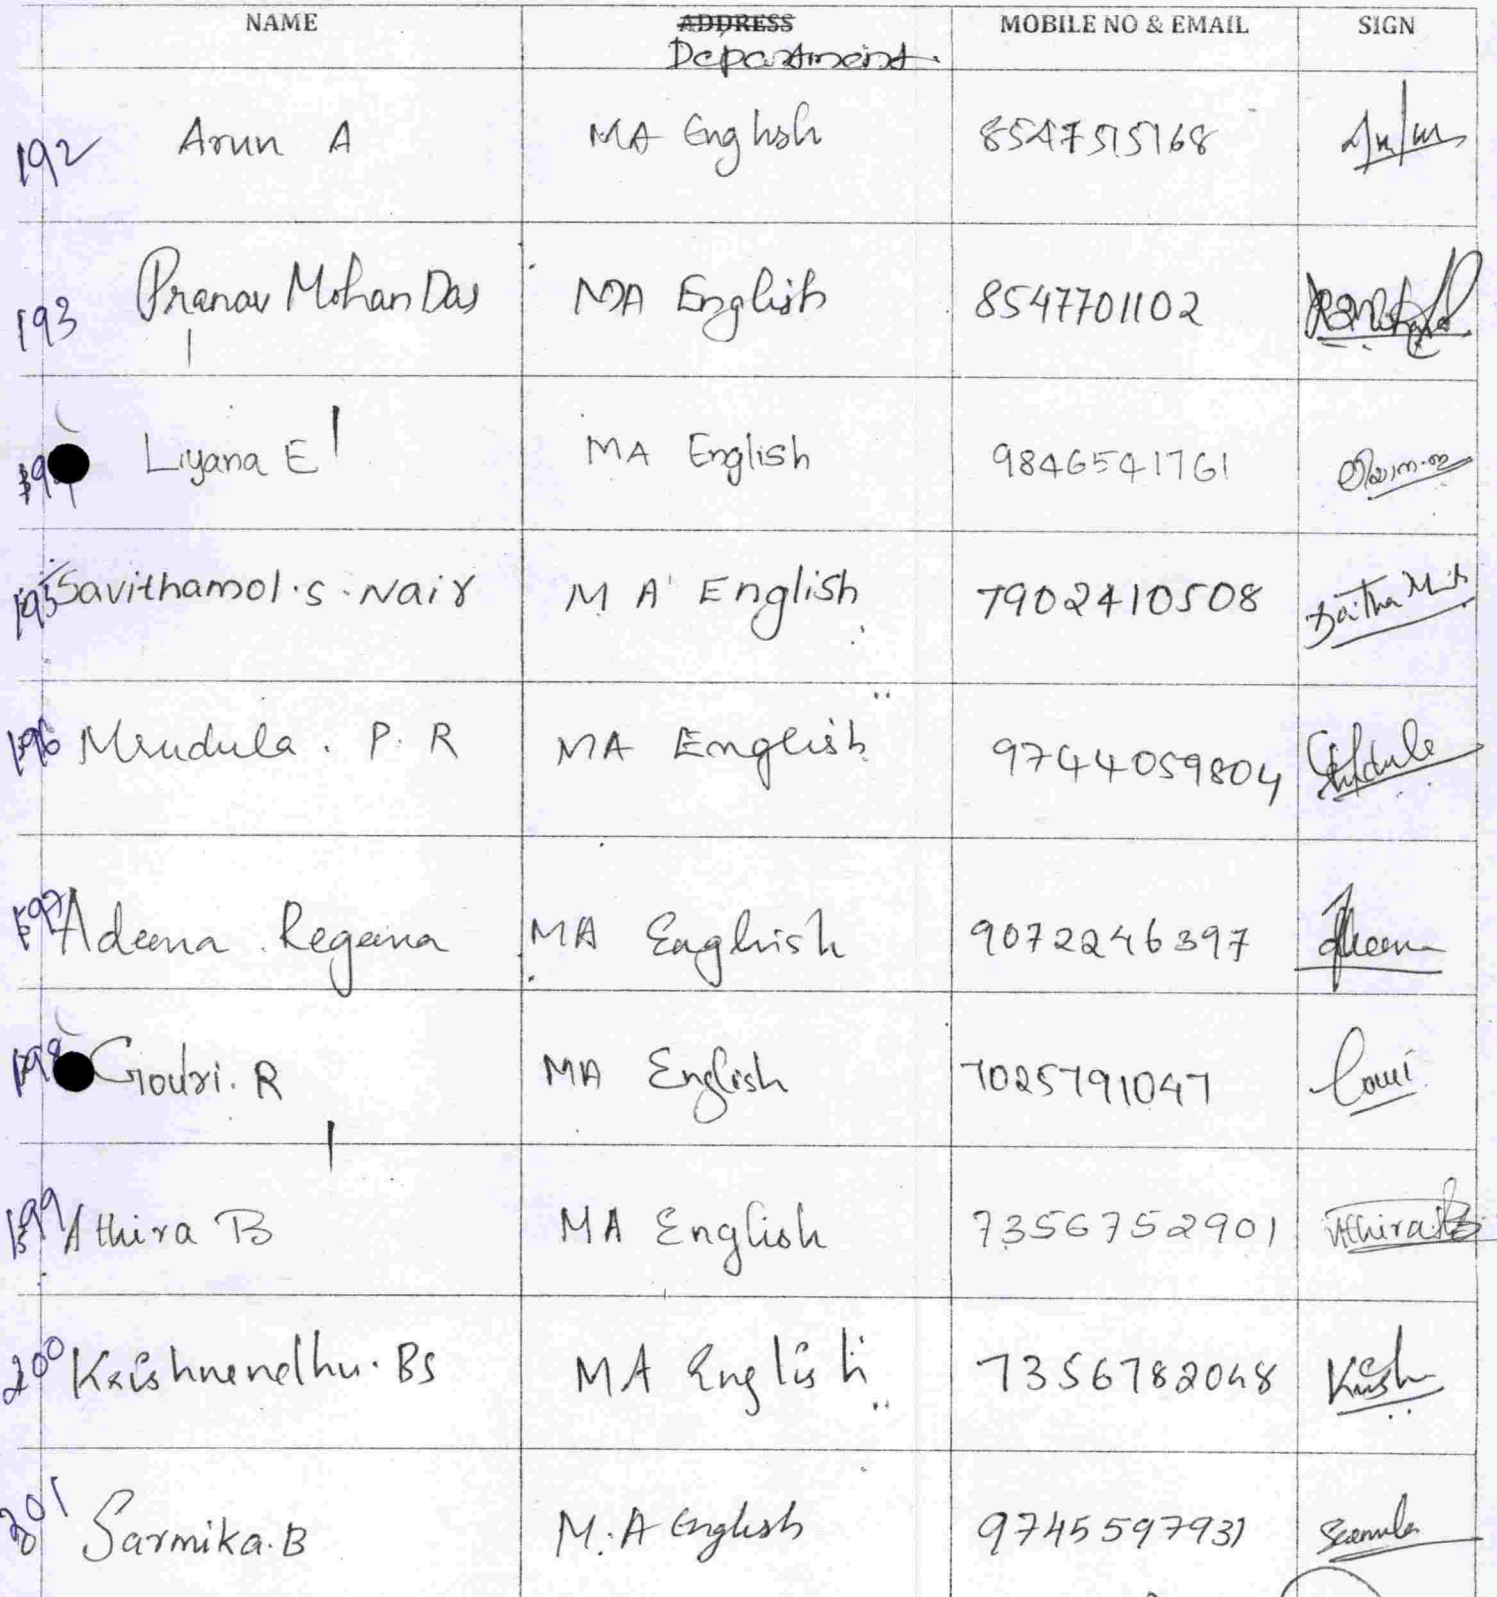 NAME ADDRESS MOBILE NO & EMAIL SIGN
Department.
192 Arun A MA English 8547515168
193 Pranav Mohan Das MA English 8547701102
194 Liyana E MA English 9846541761
195 Savithamol.S.Nair M A English 7902410508
196 Mrudula. P. R MA English 9744059804
197 Adeena Regeena MA English 9072246397
198 Gouri. R MA English 7025791047 Gouri
199 Athira B MA English 7356752901 Athira.B
200 Krishnendhu. BS MA English 7356782048 Krish
201 Sarmika.B M.A English 9745597931